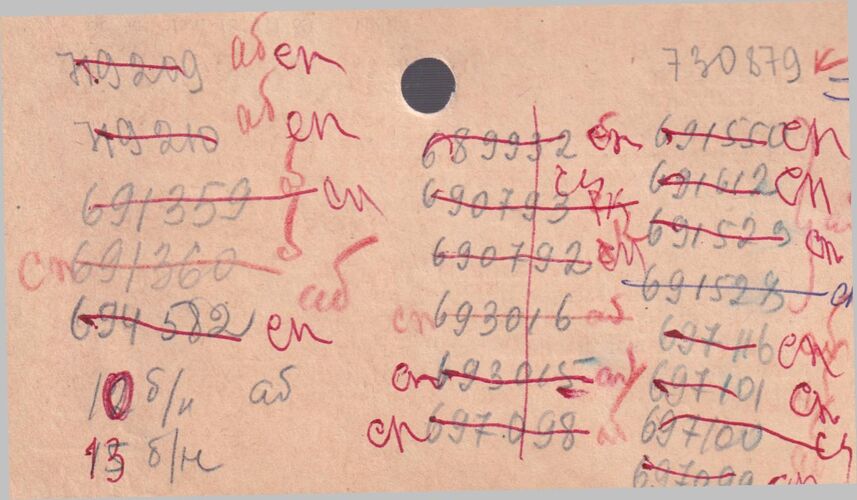 719209 аб сп
719210 аб сп
691359 сп
сп 691360
аб
694582 сп
10 б/н аб
15 б/н
689932 сп
690793
690792 сп
сп 693016 аб
сп 693015 аб
сп 697098 аб
730879
691550 сп
691612 сп
691529 сп
691528 сп
697116 сп
697101 сп
697100 сп
697099 сп